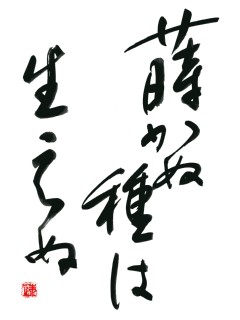 蒔かぬ種は
生えぬ